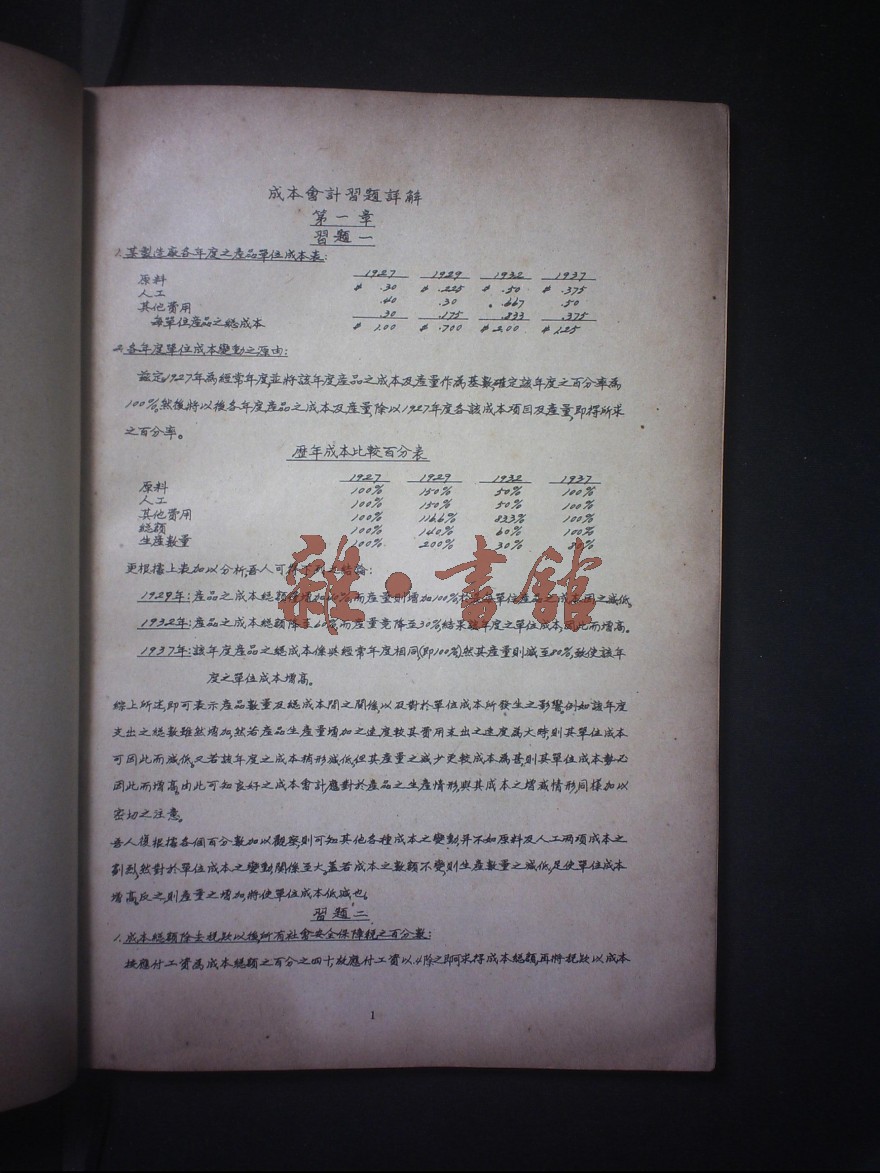 成本會計習題詳解
第一章
習題一
1. 某製造廠各年度之產品單位成本表:
1927 1929 1932 1937
原料 $ .30 $ .225 $ .50 $ .375
人工 .40 .30 .667 .50
其他費用 .30 .175 .833 .375
每單位產品之總成本 $ 1.00 $ .700 $ 2.00 $ 1.25
2. 各年度單位成本變動之源由:
茲定1927年為經常年度,並將該年度產品之成本及產量作為基數,確定該年度之百分率為
100%,然後將以後各年度產品之成本及產量,除以1927年度各該成本項目及產量,即得所求
之百分率。
歷年成本比較百分表
1927 1929 1932 1937
原料 100% 150% 50% 100%
人工 100% 150% 50% 100%
其他費用 100% 116.6% 83.3% 100%
總額 100% 140% 60% 100%
生產數量 100% 200% 30% 80%
更根據上表加以分析,吾人可得下列之結論:
1929年:產品之成本總額僅增加40%,而產量則增加100%,單位產品之成本因之減低。
1932年:產品之成本總額降至60%,而產量竟降至30%,結果該年度之單位成本,因此而增高。
1937年:該年度產品之總成本係與經常年度相同(即100%),然其產量則減至80%,致使該年
度之單位成本增高。
綜上所述,即可表示產品數量及總成本間之關係,以及對於單位成本所發生之影響,例如該年度
支出之總數雖然增加,然若產品生產量增加之速度較其費用支出之速度為大時,則其單位成本
可因此而減低,又若該年度之成本稍形減低,但其產量之減少更較成本為甚,則其單位成本勢必
因此而增高,由此可知良好之成本會計,應對於產品之生產情形,與其成本之增減情形,同樣加以
密切之注意。
吾人復根據各個百分數加以觀察,則可知其他各種成本之變動,并不如原料及人工兩項成本之
劇烈,然對於單位成本之變動,關係至大,蓋若成本之數額不變,則生產數量之減低,足使單位成本
增高,反之,則產量之增加,將使單位成本低減也。
習題二
1. 成本總額除去稅款以後,所有社會安全保障稅之百分數:
按應付工資為成本總額之百分之四十,故應付工資以.4除之,即可求得成本總額,再將稅款以成本
1
雜·書館